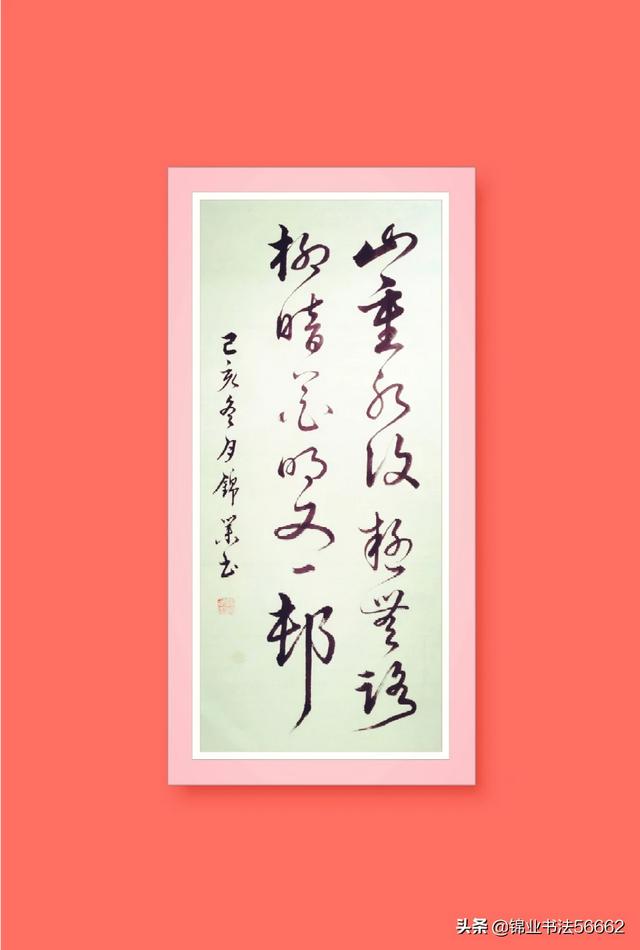 山重水復疑無路
柳暗花明又一邨
己亥冬月錦業書
头条 @锦业书法56662